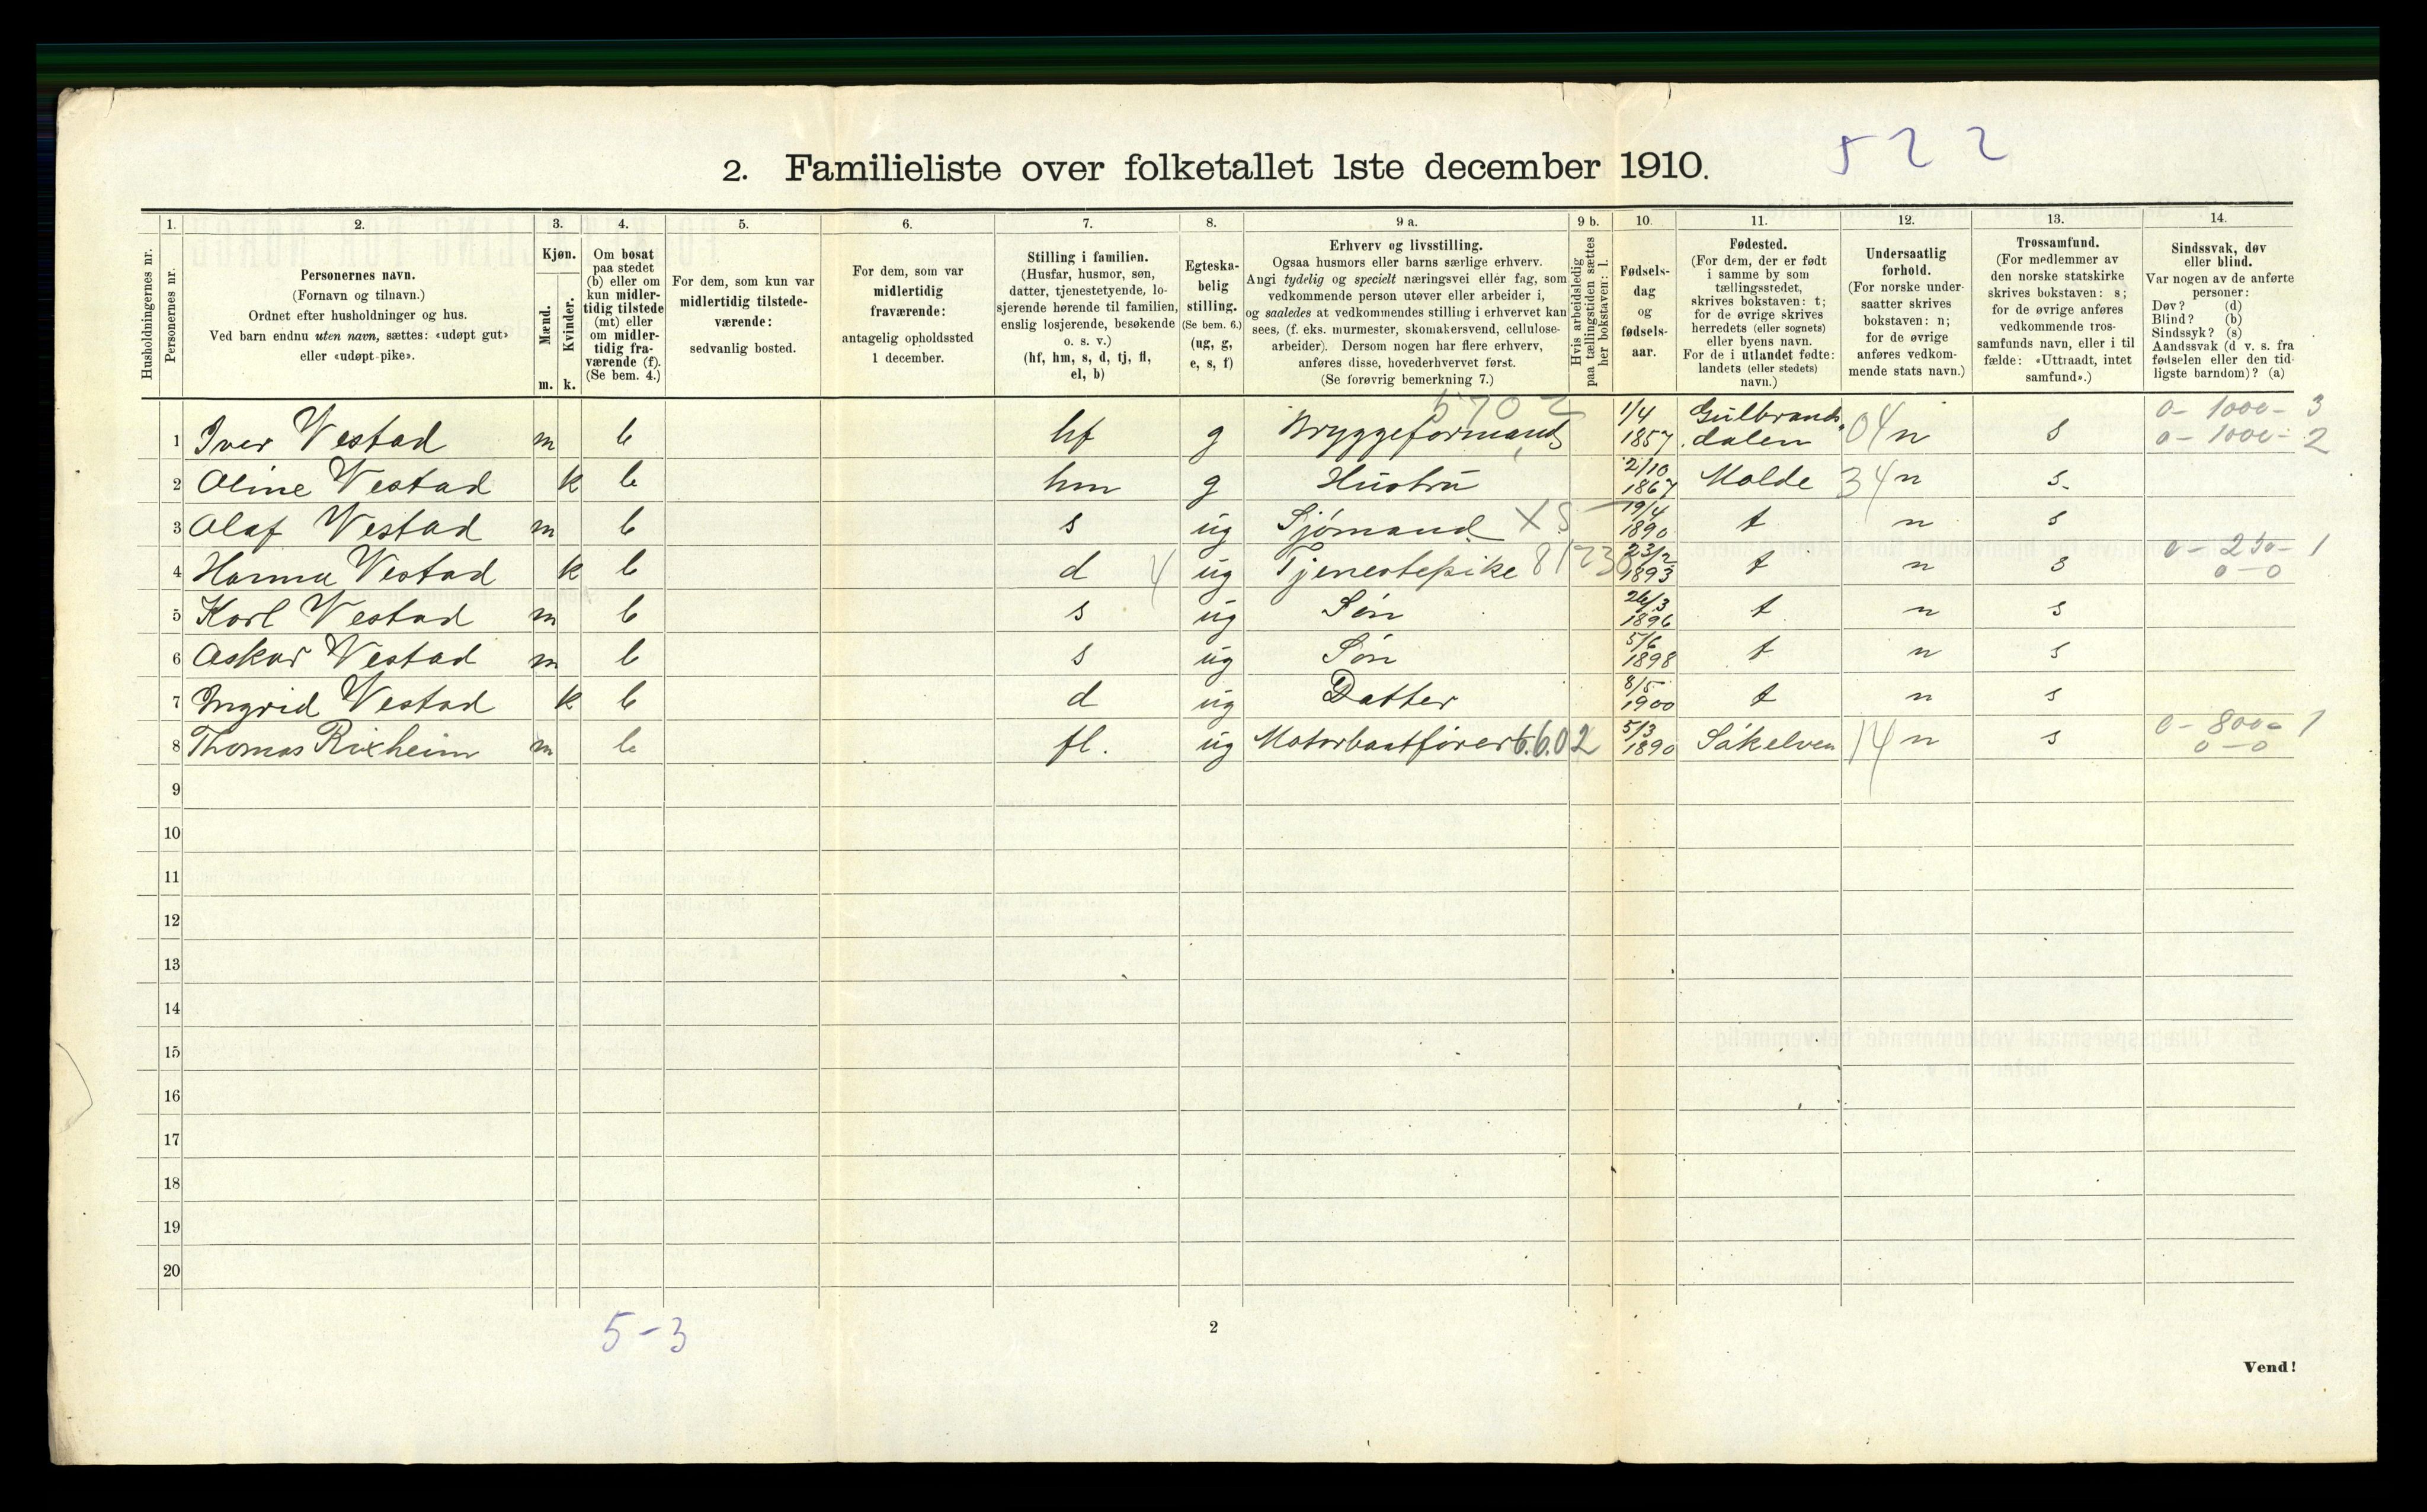 2. Familieliste over folketallet 1ste december 1910.
5 2 2
Husholdningernes nr.
1.
Personernes nr.
2.
Personernes navn.
(Fornavn og tilnavn.)
Ordnet efter husholdninger og hus.
Ved barn endnu uten navn, sættes: «udøpt gut»
eller «udøpt pike».
3.
Kjøn.
Mænd.
Kvinder.
m. k.
4.
Om bosat
paa stedet
(b) eller om
kun midler-
tidig tilstede
(mt) eller
om midler-
tidig fra-
værende (f).
(Se bem. 4.)
5.
For dem, som kun var
midlertidig tilstede-
værende:
sedvanlig bosted.
6.
For dem, som var
midlertidig
fraværende:
antagelig opholdssted
1 december.
7.
Stilling i familien.
(Husfar, husmor, søn,
datter, tjenestetyende, lo-
sjerende hørende til familien,
enslig losjerende, besøkende
o. s. v.)
(hf, hm, s, d, tj, fl,
el, b)
8.
Egteska-
belig
stilling.
(Se bem. 6.)
(ug, g,
e, s, f)
9 a.
Erhverv og livsstilling.
Ogsaa husmors eller barns særlige erhverv.
Angi tydelig og specielt næringsvei eller fag, som
vedkommende person utøver eller arbeider i,
og saaledes at vedkommendes stilling i erhvervet kan
sees, (f. eks. murmester, skomakersvend, cellulose-
arbeider). Dersom nogen har flere erhverv,
anføres disse, hovederhvervet først.
(Se forøvrig bemerkning 7.)
9 b.
Hvis arbeidsledig
paa tællingstiden sættes
her bokstaven: l.
10.
Fødsels-
dag
og
fødsels-
aar.
11.
Fødested.
(For dem, der er født
i samme by som
tællingsstedet,
skrives bokstaven: t;
for de øvrige skrives
herredets (eller sognets)
eller byens navn.
For de i utlandet fødte:
landets (eller stedets)
navn.)
12.
Undersaatlig
forhold.
(For norske under-
saatter skrives
bokstaven: n;
for de øvrige
anføres vedkom-
mende stats navn.)
13.
Trossamfund.
(For medlemmer av
den norske statskirke
skrives bokstaven: s;
for de øvrige anføres
vedkommende tros-
samfunds navn, eller i til
fælde: «Uttraadt, intet
samfund».)
14.
Sindssvak, døv
eller blind.
Var nogen av de anførte
personer:
Døv? (d)
Blind? (b)
Sindssyk? (s)
Aandssvak (d v. s. fra
fødselen eller den tid-
ligste barndom)? (a)
1 Iver Vestad m b hf g Bryggeformand 5702 1/4 1857 Gulbrands-dalen 04 n s 0-1000-3 0-1000-2
2 Oline Vestad k b hm g Hustru 2/10 1867 Molde 34 n s.
3 Olaf Vestad m b s ug Sjømand XS 19/4 1890 t n s
4 Hanna Vestad k b d 4 ug Tjenestepike 81230 23/2 1893 t n s 0-250-1 0-0
5 Karl Vestad m b s ug Søn 26/3 1896 t n s
6 Oskar Vestad m b s ug Søn 5/6 1898 t n s
7 Ingrid Vestad k b d ug Datter 8/5 1900 t n s
8 Thomas Rixheim m b fl. ug Motorbaatfører 6.6.02 5/3 1890 Søkelven 14 n s 0-800-1 0-0
9
10
11
12
13
14
15
16
17
18
19
20
5-3
2
Vend!